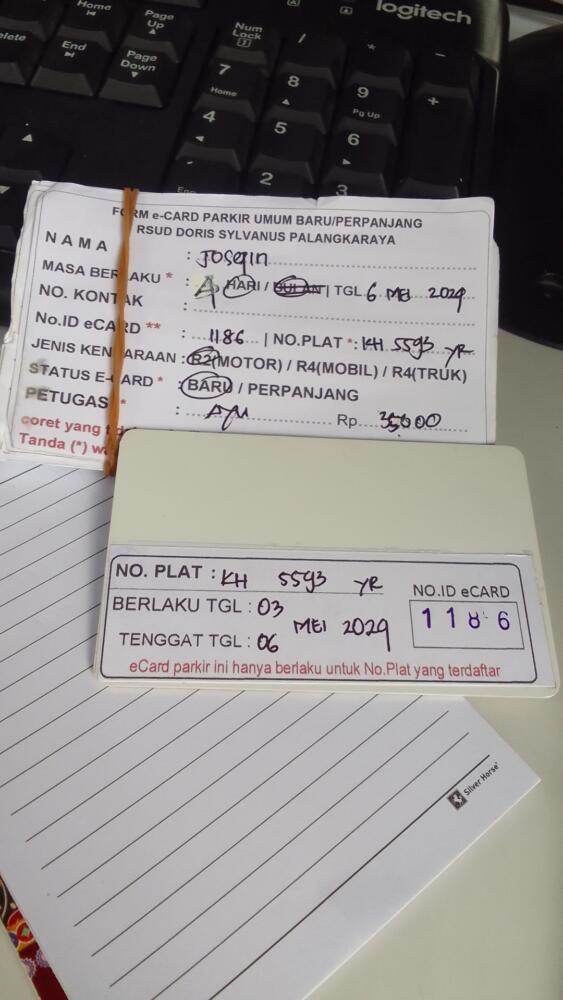 logitech
Home
Page Up
Num Lock
/
*
-
End
Page Down
7 Home
8
9 Pg Up
+
4
5
6
2
3
FORM e-CARD PARKIR UMUM BARU/PERPANJANG
RSUD DORIS SYLVANUS PALANGKARAYA
NAMA : Josqin
MASA BERLAKU * : 4 HARI / BULAN | TGL. 6 MEI 2024
NO. KONTAK :
No.ID eCARD ** : 1186 | NO.PLAT * : KH 5593 YR
JENIS KENDARAAN : R2(MOTOR) / R4(MOBIL) / R4(TRUK)
STATUS E-CARD * : BARU / PERPANJANG
PETUGAS * : AYU Rp. 35000
coret yang
Tanda (*) w
NO. PLAT : KH 5593 YR
NO.ID eCARD
BERLAKU TGL : 03
1186
MEI 2024
TENGGAT TGL : 06
eCard parkir ini hanya berlaku untuk No.Plat yang terdaftar
Silver Horse